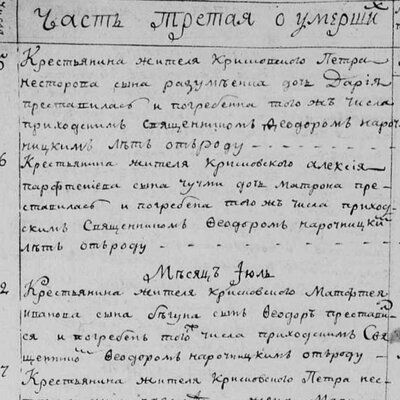 Часть третая о умерши
5 Крестьянина жителя Крисовского Петра
несторова сына разумѣнца дочь Дарія
преставилась и погребенна того жъ числа
приходскимъ Священникомъ Феодоромъ нароч
ницкимъ лѣтъ отъроду
6 Крестьянина жителя Крисовского алексія
парфтеніева сына чучми дочь матрона пре-
ставилась и погребена того жъ числа приход-
скимъ Священникомъ Феодоромъ нарочницкій
лѣтъ отъроду
Мѣсяцъ Іюль
2 Крестьянина жителя Крисовского Матфтея
иванова сына бѣгуна сынъ Феодоръ престави
ся и погребенъ того числа приходскимъ Свя
щенни Феодоромъ нарочницкимъ отъроду
7 Крестьянина жителя Крисовского Петра нес-